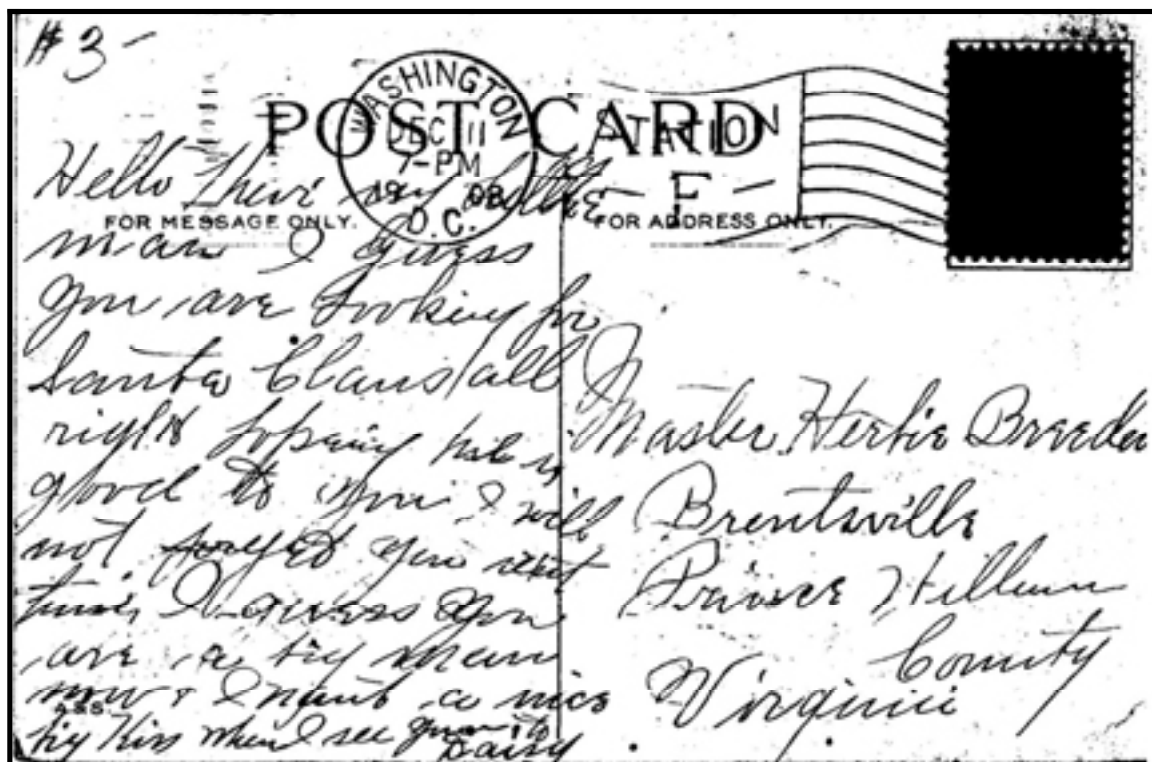 #3 -
POST CARD
WASHINGTON
DEC 11
7-PM
1908
D.C.
STATION
- F -
FOR MESSAGE ONLY.
FOR ADDRESS ONLY.
Hello there my little
man I guess
you are looking for
Santa Claus all
right hoping he is
good to you I will
not forget you next
time, I guess you
are a big man
now & I want a nice
big kiss when I see you
Daisy
Master Herbie Breeden
Brentsville
Prince William
County
Virginia